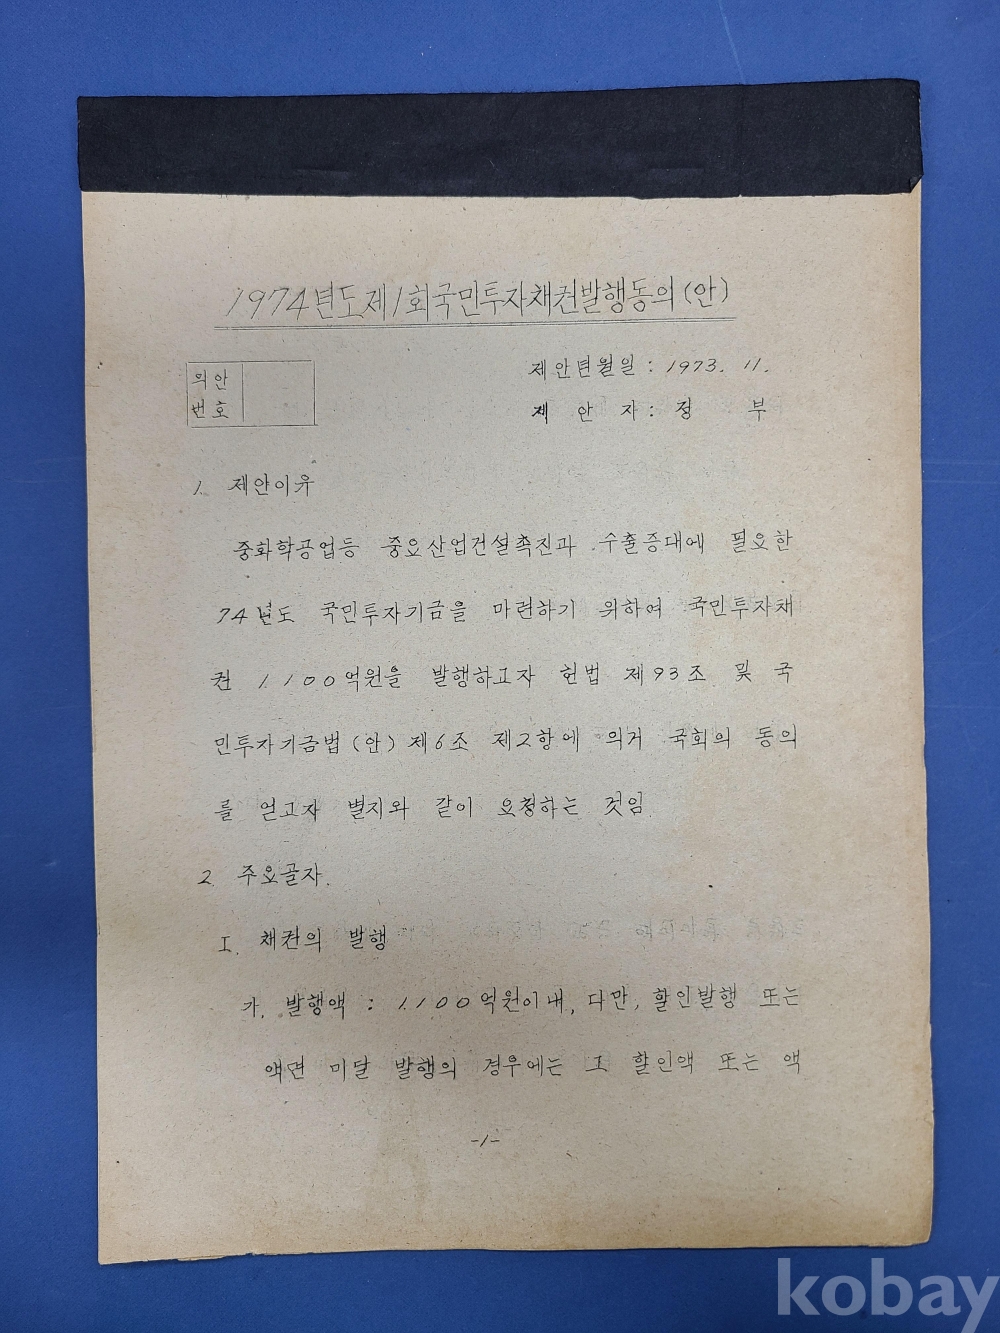 1974년도제1회국민투자채권발행동의(안)
의안
번호
제안년월일 : 1973. 11.
제 안 자 : 정 부
1. 제안이유
중화학공업등 중요산업건설촉진과 수출증대에 필요한
74년도 국민투자기금을 마련하기 위하여 국민투자채
권 1,100억원을 발행하고자 헌법 제93조 및 국
민투자기금법(안) 제6조 제2항에 의거 국회의 동의
를 얻고자 별지와 같이 요청하는 것임.
2. 주요골자.
I. 채권의 발행
가. 발행액 : 1,100억원이내, 다만, 할인발행 또는
액면 미달 발행의 경우에는 그 할인액 또는 액
-1-
kobay